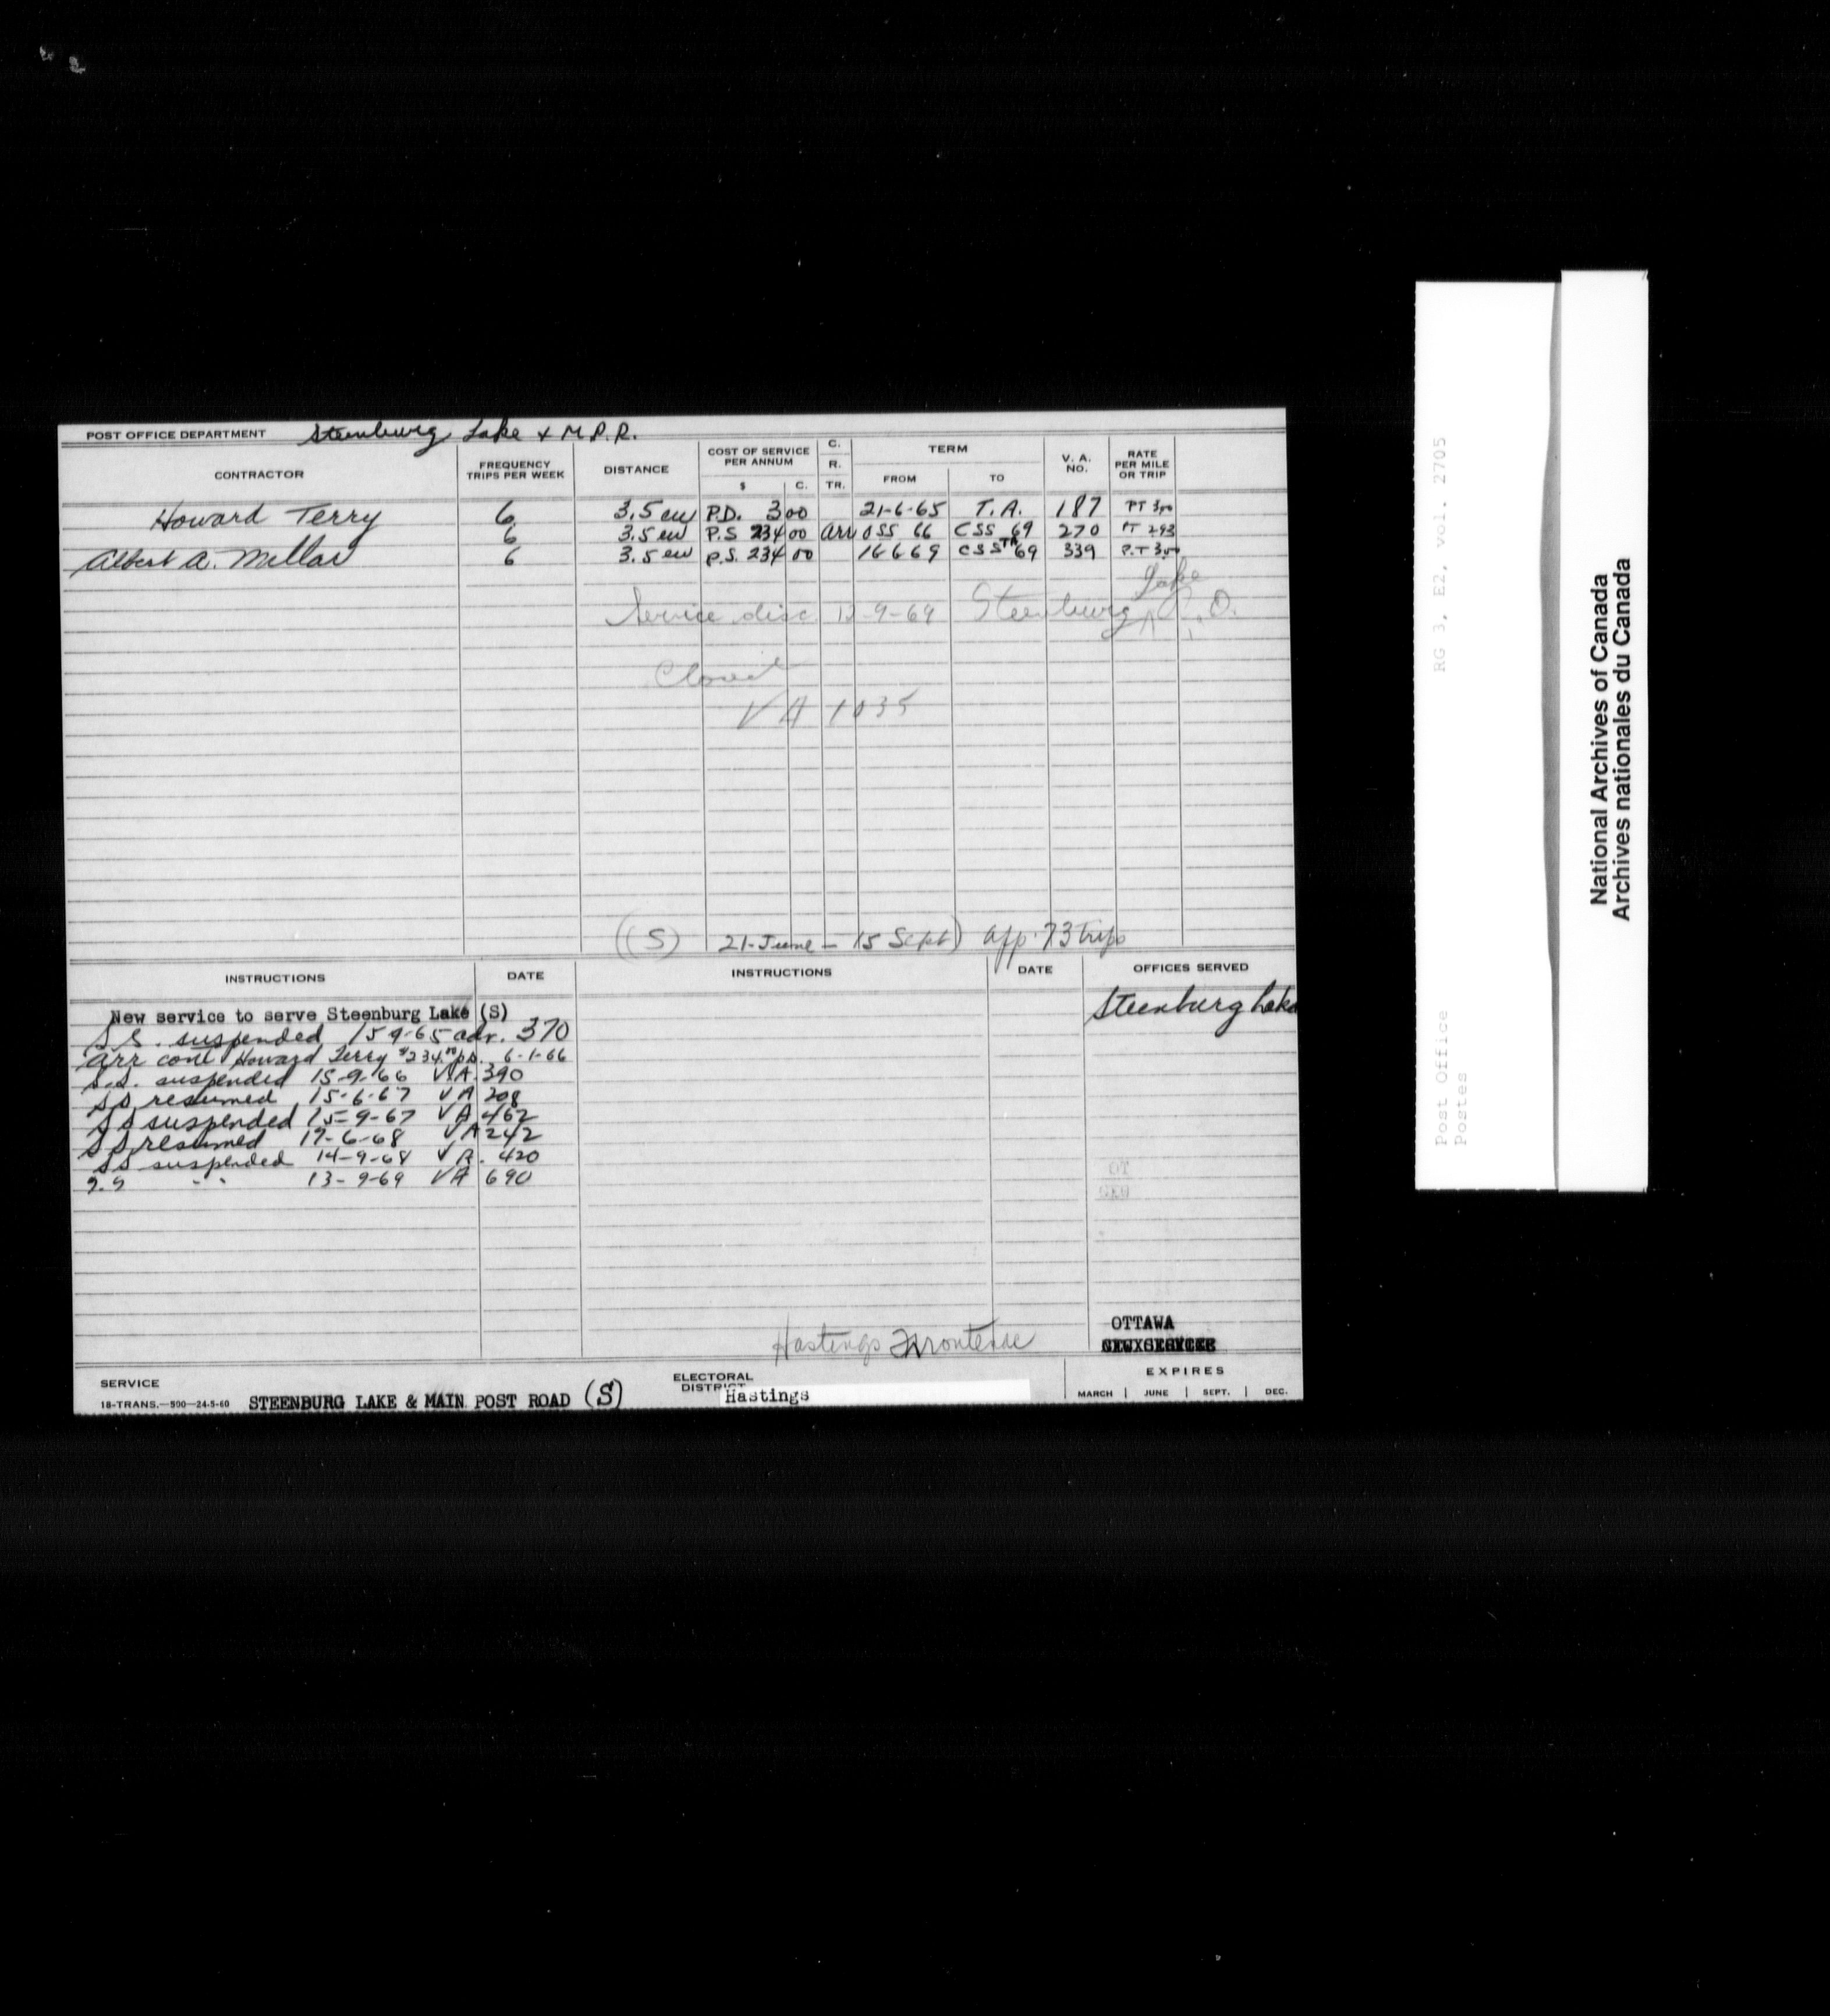 POST OFFICE DEPARTMENT Steenburg Lake & M.P.R.
CONTRACTOR FREQUENCY TRIPS PER WEEK DISTANCE COST OF SERVICE PER ANNUM $ C. C. R. TR. TERM FROM TO V. A. NO. RATE PER MILE OR TRIP
Howard Terry 6 3.5 ew P.D. 3 00 21-6-65 T.A. 187 PT 3.00
6 3.5 ew P.S 234 00 arr OSS 66 CSS 69 270 PT 2.93
Albert A. Millar 6 3.5 ew P.S. 234 00 16 6 69 CSS TA 69 339 P.T 3.00
Service disc 12-9-69 Steenburg Lake P.O.
Closed
VA 1035
(S) 21-June - 15 Sept) app. 73 trips
INSTRUCTIONS DATE INSTRUCTIONS DATE OFFICES SERVED
New service to serve Steenburg Lake (S) Steenburg Lake
S.S. suspended 15-9-65 adv. 370
arr cont Howard Terry $234.00 p.s. 6-1-66
S.S. suspended 15-9-66 V.A. 390
SS resumed 15-6-67 VA 208
SS suspended 15-9-67 VA 462
SS resumed 17-6-68 VA 242
SS suspended 14-9-68 VA. 420
S.S " " 13-9-69 VA 690
Hastings Frontenac
OTTAWA
SERVICE ELECTORAL DISTRICT Hastings EXPIRES
18-TRANS.—500—24-5-60 STEENBURG LAKE & MAIN POST ROAD (S) MARCH | JUNE | SEPT. | DEC.
RG 3, E2, vol. 2705
Post Office
Postes
National Archives of Canada
Archives nationales du Canada